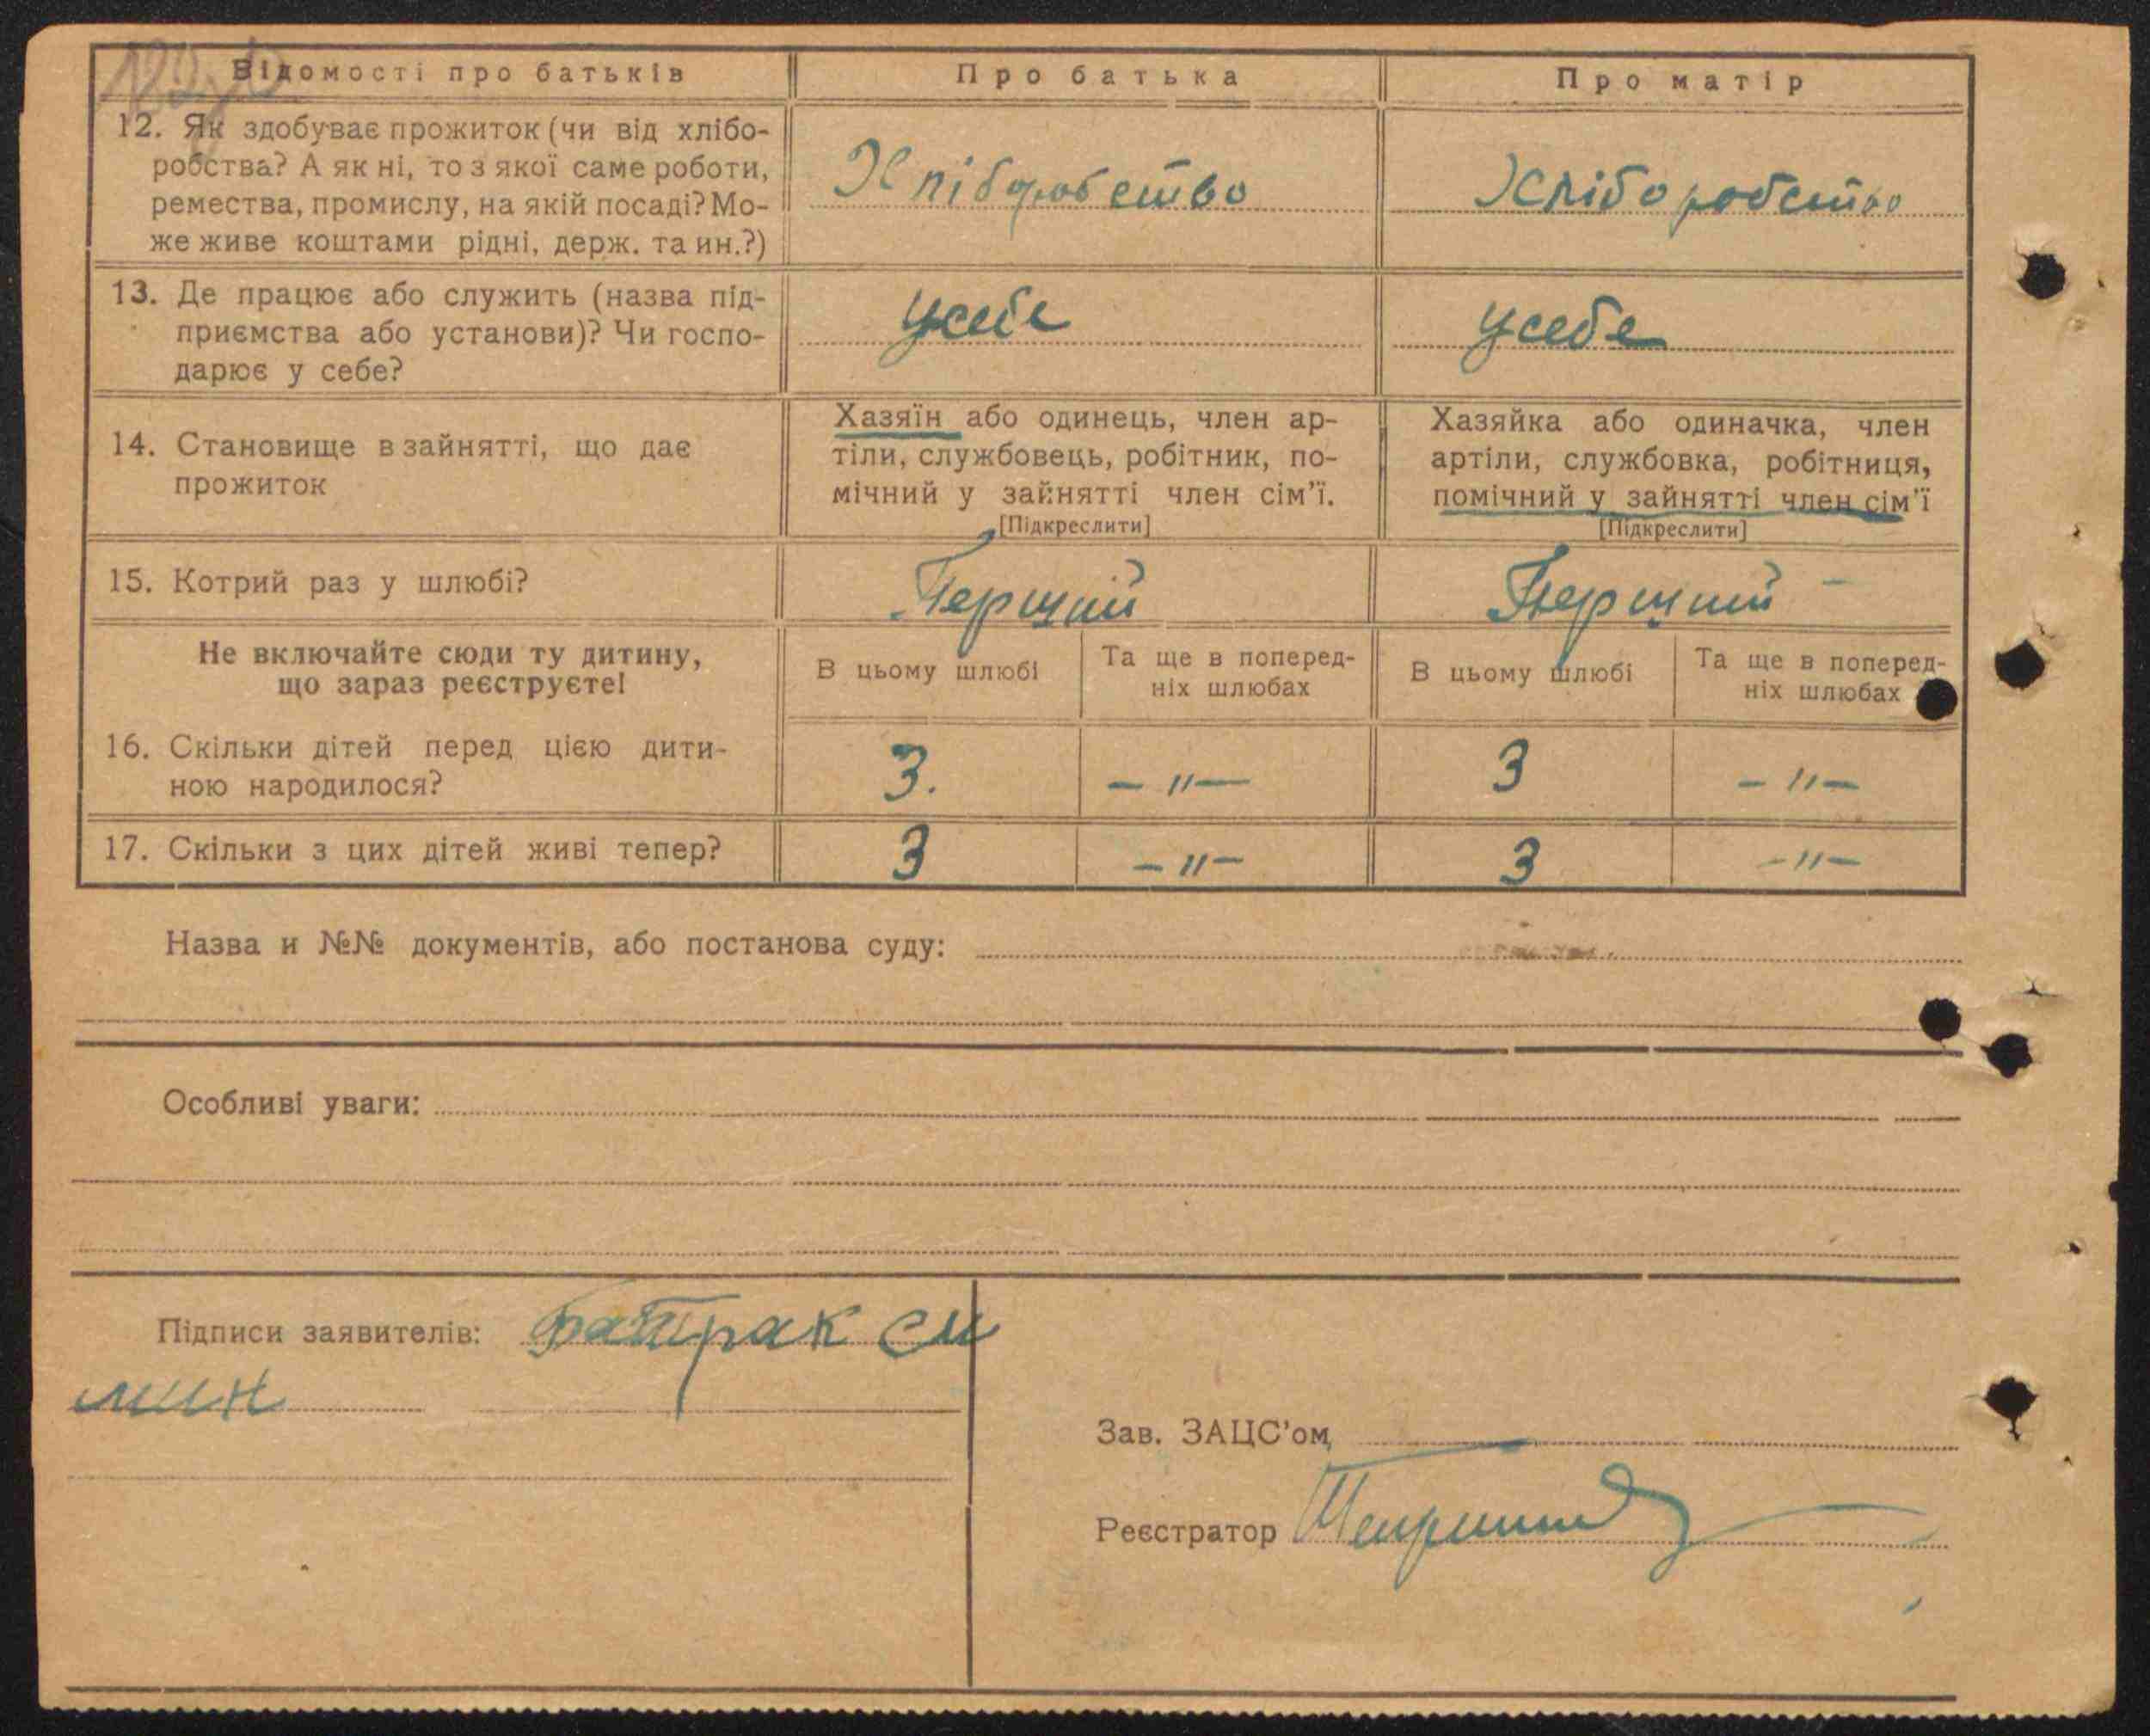 Відомості про батьків Про батька Про матір
12. Як здобуває прожиток (чи від хлібо-
робства? А як ні, то з якої саме роботи,
ремества, промислу, на якій посаді? Мо-
же живе коштами рідні, держ. та ин.?)
Хліборобство Хліборобство
13. Де працює або служить (назва під-
приємства або установи)? Чи госпо-
дарює у себе?
усебе усебе
14. Становище в зайнятті, що дає
прожиток
Хазяїн або одинець, член ар-
тіли, службовець, робітник, по-
мічний у зайнятті член сім'ї.
[Підкреслити]
Хазяйка або одиначка, член
артіли, службовка, робітниця,
помічний у зайнятті член сім'ї
[Підкреслити]
15. Котрий раз у шлюбі? Перший Перший
Не включайте сюди ту дитину,
що зараз реєструєте!
В цьому шлюбі
Та ще в поперед-
ніх шлюбах
В цьому шлюбі
Та ще в поперед-
ніх шлюбах
16. Скільки дітей перед цією дити-
ною народилося?
3. — „ — 3 — „ —
17. Скільки з цих дітей живі тепер? 3 — „ — 3 — „ —
Назва и №№ документів, або постанова суду:
Особливі уваги:
Підписи заявителів: Батрак Си
мин
Зав. ЗАЦС'ом
Реєстратор